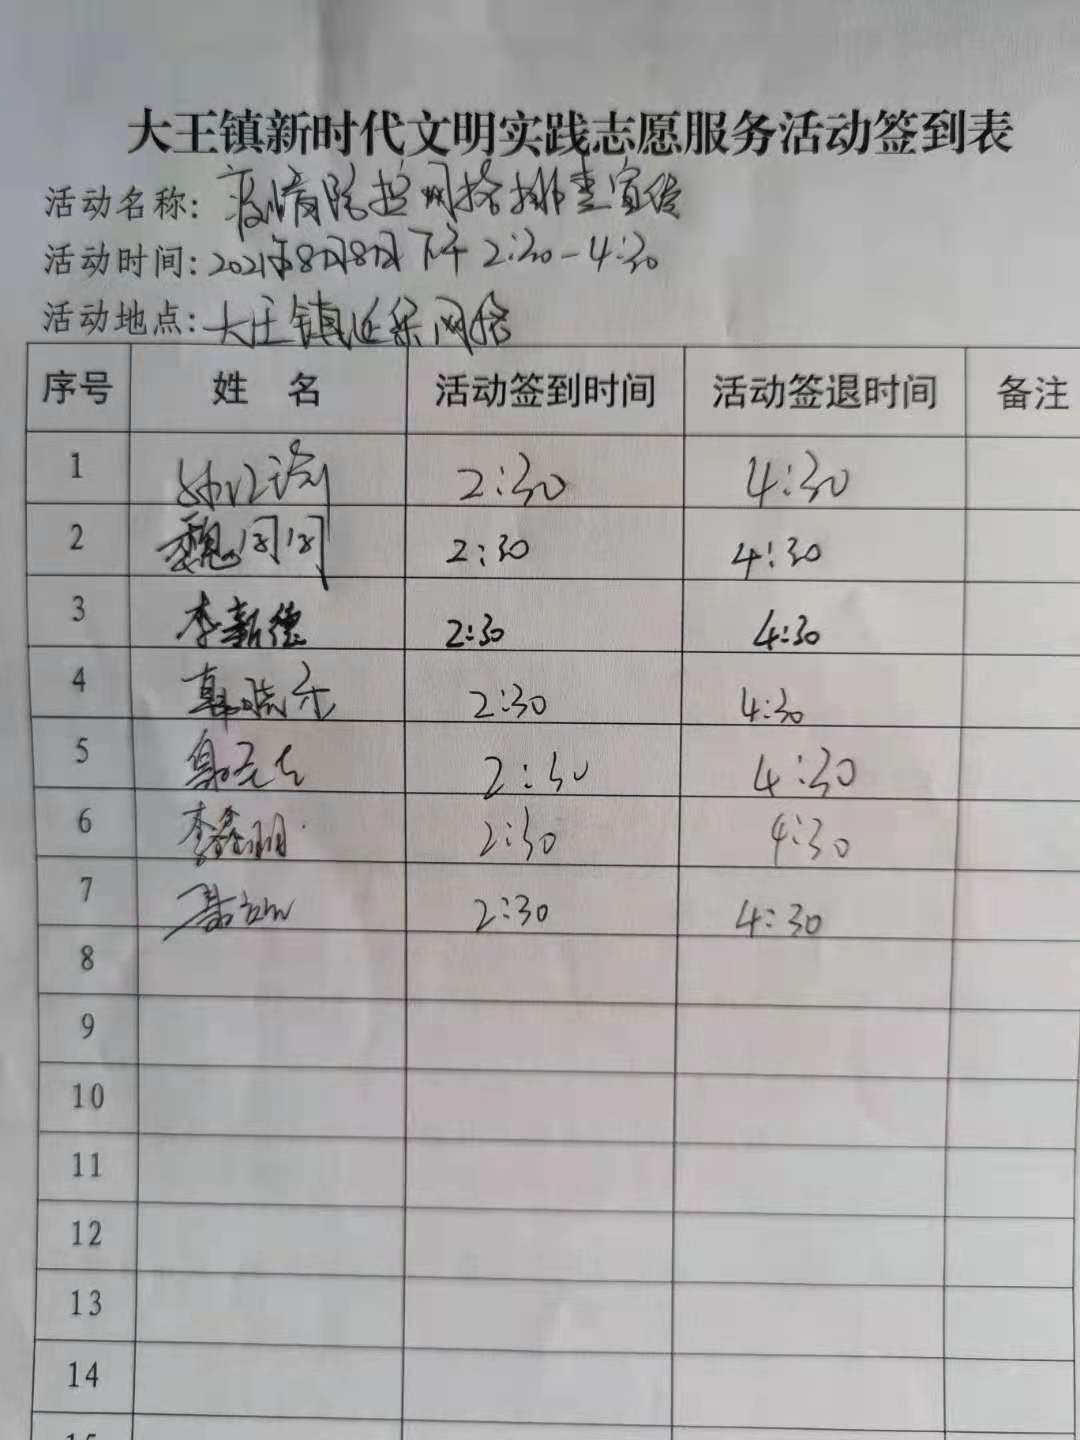 大王镇新时代文明实践志愿服务活动签到表
活动名称：疫情防控网格排查宣传
活动时间：2021年8月8日下午2:30-4:30
活动地点：大王镇延集网格
序号 姓名 活动签到时间 活动签退时间 备注
1 2:30 4:30
2 魏闰闰 2:30 4:30
3 李新德 2:30 4:30
4 韩晓乐 2:30 4:30
5 2:30 4:30
6 李鑫明 2:30 4:30
7 2:30 4:30
8
9
10
11
12
13
14
15